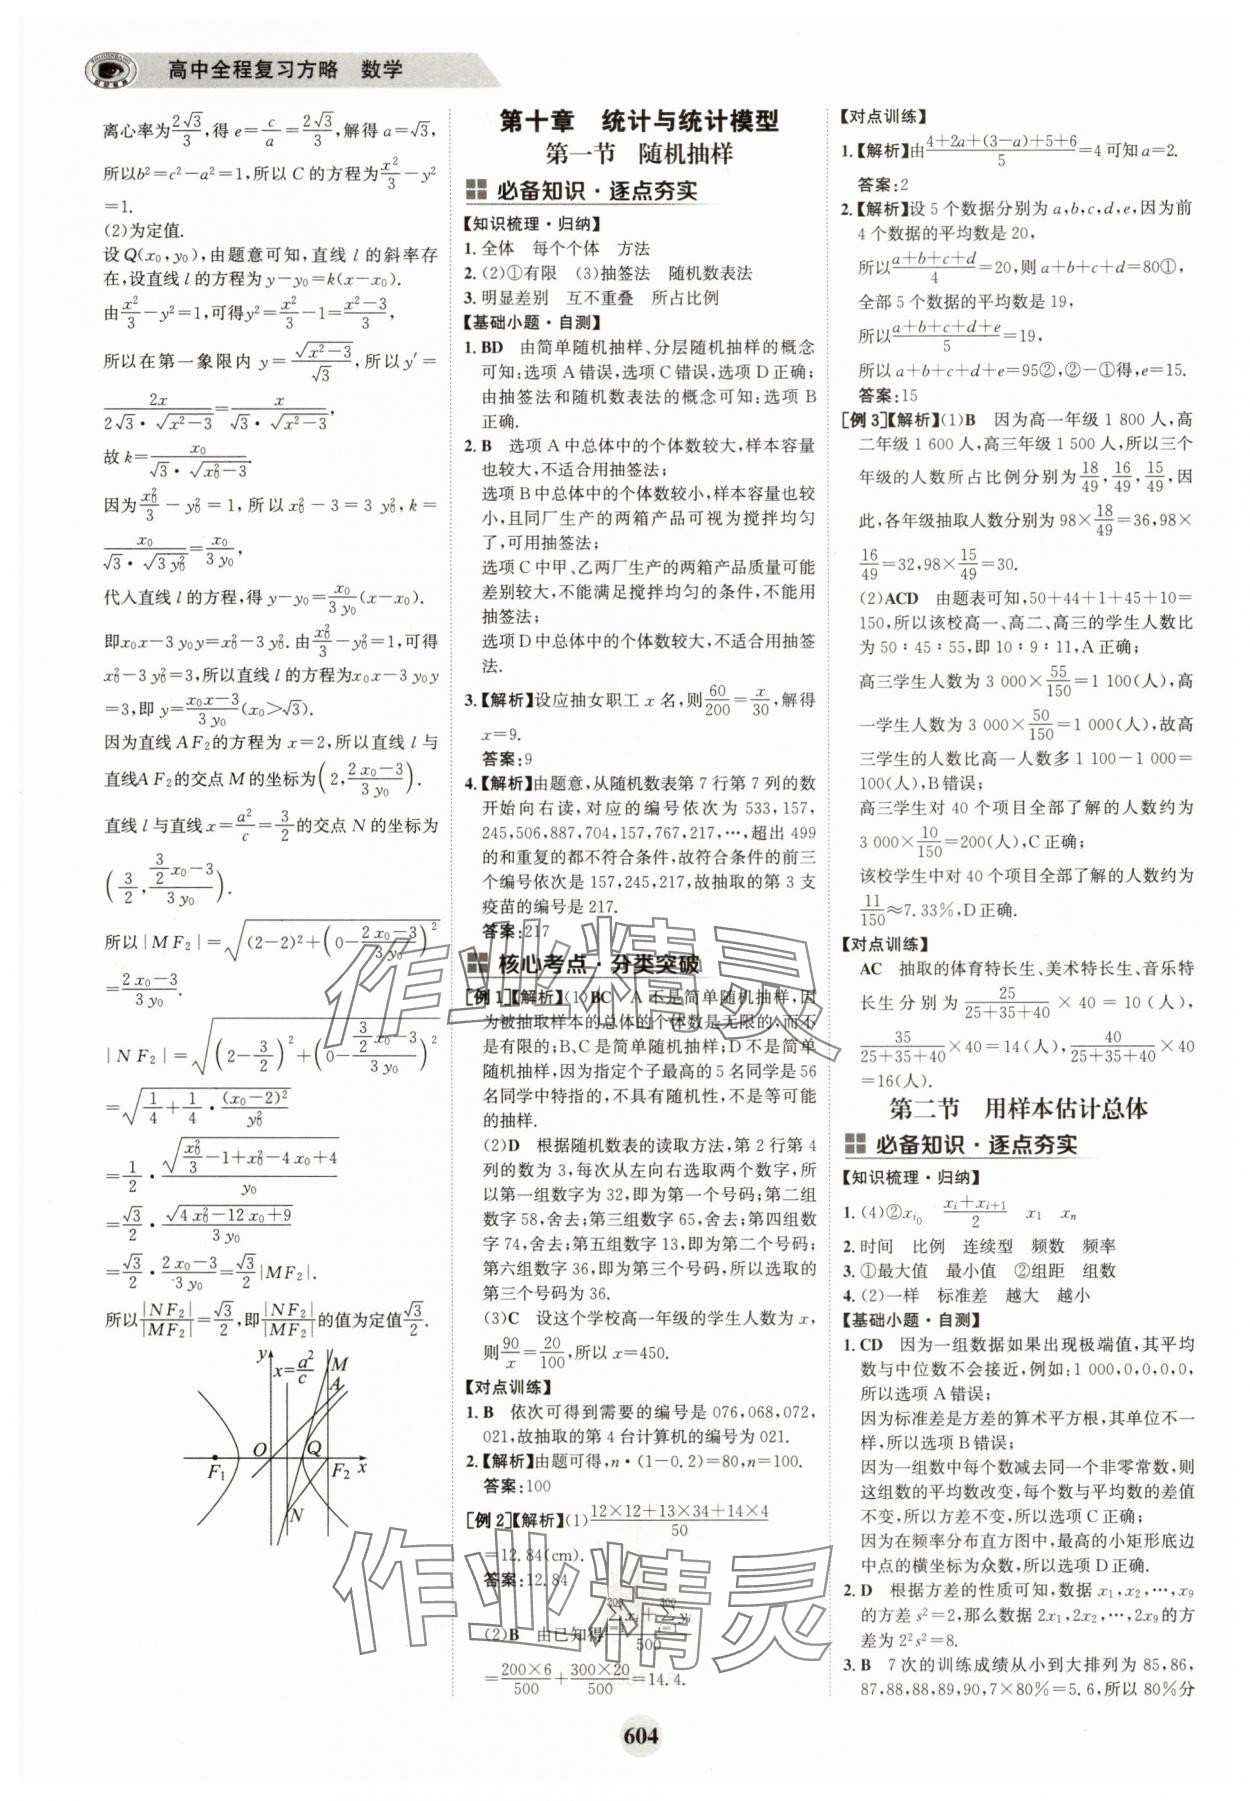 高中全程复习方略 数学
离心率为2√3/3,得 e=c/a=2√3/3,解得 a=√3,
所以b²=c²-a²=1,所以 C 的方程为x²/3-y²
=1.
(2)为定值.
设 Q(x₀,y₀),由题意可知,直线 l 的斜率存
在,设直线 l 的方程为 y-y₀=k(x-x₀).
由x²/3-y²=1,可得y²=x²/3-1=(x²-3)/3,
所以在第一象限内 y=√(x²-3)/√3,所以 y′=
2x/(2√3·√(x²-3))=x/(√3·√(x²-3)),
故 k=x₀/(√3·√(x₀²-3)).
因为x₀²/3-y₀²=1,所以 x₀²-3=3y₀²,k=
x₀/(√3·√(3y₀²))=x₀/(3y₀),
代入直线 l 的方程,得 y-y₀=x₀/(3y₀)(x-x₀).
即x₀x-3y₀y=x₀²-3y₀².由x₀²/3-y₀²=1,可得
x₀²-3y₀²=3,所以直线 l 的方程为x₀x-3y₀y
=3,即 y=(x₀x-3)/(3y₀)(x₀>√3).
因为直线 AF₂的方程为 x=2,所以直线 l 与
直线AF₂的交点 M 的坐标为(2,(2x₀-3)/(3y₀)).
直线 l 与直线 x=a²/c=3/2的交点 N 的坐标为
(3/2,(3/2x₀-3)/(3y₀)).
所以|MF₂|=√((2-2)²+(0-(2x₀-3)/(3y₀))²)
=(2x₀-3)/(3y₀).
|NF₂|=√((2-3/2)²+(0-(3/2x₀-3)/(3y₀))²)
=√(1/4+1/4·(x₀-2)²/y₀²)
=1/2·√(x₀²/3-1+x₀²-4x₀+4)/y₀
=√3/2·√(4x₀²-12x₀+9)/(3y₀)
=√3/2·(2x₀-3)/(3y₀)=√3/2|MF₂|.
所以|NF₂|/|MF₂|=√3/2,即|NF₂|/|MF₂|的值为定值√3/2.
y x=a²/c M A O Q F₁ F₂ x N
第十章 统计与统计模型
第一节 随机抽样
必备知识·逐点夯实
【知识梳理·归纳】
1.全体 每个个体 方法
2.(2)①有限 (3)抽签法 随机数表法
3.明显差别 互不重叠 所占比例
【基础小题·自测】
1.BD 由简单随机抽样、分层随机抽样的概念
可知:选项 A 错误,选项 C 错误,选项 D 正确;
由抽签法和随机数表法的概念可知:选项 B
正确.
2.B 选项 A 中总体中的个体数较大,样本容量
也较大,不适合用抽签法;
选项 B 中总体中的个体数较小,样本容量也较
小,且同厂生产的两箱产品可视为搅拌均匀
了,可用抽签法;
选项 C 中甲、乙两厂生产的两箱产品质量可能
差别较大,不能满足搅拌均匀的条件,不能用
抽签法;
选项 D 中总体中的个体数较大,不适合用抽签
法.
3.【解析】设应抽女职工 x 名,则60/200=x/30,解得
x=9.
答案:9
4.【解析】由题意,从随机数表第 7 行第 7 列的数
开始向右读,对应的编号依次为 533,157,
245,506,887,704,157,767,217,…,超出 499
的和重复的都不符合条件,故符合条件的前三
个编号依次是 157,245,217,故抽取的第 3 支
疫苗的编号是 217.
答案:217
核心考点·分类突破
[例 1]【解析】(1)BC A 不是简单随机抽样,因
为被抽取样本的总体的个体数是无限的,而不
是有限的;B、C 是简单随机抽样;D 不是简单
随机抽样,因为指定个子最高的 5 名同学是 56
名同学中特指的,不具有随机性,不是等可能
的抽样.
(2)D 根据随机数表的读取方法,第 2 行第 4
列的数为 3,每次从左向右选取两个数字,所
以第一组数字为 32,即为第一个号码;第二组
数字 58,舍去;第三组数字 65,舍去;第四组数
字 74,舍去;第五组数字 13,即为第二个号码;
第六组数字 36,即为第三个号码,所以选取的
第三个号码为 36.
(3)C 设这个学校高一年级的学生人数为 x,
则90/x=20/100,所以 x=450.
【对点训练】
1.B 依次可得到需要的编号是 076,068,072,
021,故抽取的第 4 台计算机的编号为 021.
2.【解析】由题可得,n·(1-0.2)=80,n=100.
答案:100
[例 2]【解析】(1)(12×12+13×34+14×4)/50
=12.84(cm).
答案:12.84
(2)B 由已知得(∑(i=1→200)xᵢ+∑(i=1→300)yᵢ)/500
=200×6/500+300×20/500=14.4.
【对点训练】
1.【解析】由(4+2a+(3-a)+5+6)/5=4 可知 a=2.
答案:2
2.【解析】设 5 个数据分别为 a,b,c,d,e,因为前
4 个数据的平均数是 20,
所以(a+b+c+d)/4=20,则 a+b+c+d=80①,
全部 5 个数据的平均数是 19,
所以(a+b+c+d+e)/5=19,
所以 a+b+c+d+e=95②,②-①得,e=15.
答案:15
[例 3]【解析】(1)B 因为高一年级 1 800 人,高
二年级 1 600 人,高三年级 1 500 人,所以三个
年级的人数所占比例分别为18/49,16/49,15/49,因
此,各年级抽取人数分别为 98×18/49=36,98×
16/49=32,98×15/49=30.
(2)ACD 由题表可知,50+44+1+45+10=
150,所以该校高一、高二、高三的学生人数比
为 50∶45∶55,即 10∶9∶11,A 正确;
高三学生人数为 3 000×55/150=1 100(人),高
一学生人数为 3 000×50/150=1 000(人),故高
三学生的人数比高一人数多 1 100-1 000=
100(人),B 错误;
高三学生对 40 个项目全部了解的人数约为
3 000×10/150=200(人),C 正确;
该校学生中对 40 个项目全部了解的人数约为
11/150≈7.33%,D 正确.
【对点训练】
AC 抽取的体育特长生、美术特长生、音乐特
长生分别为25/(25+35+40)×40=10(人),
35/(25+35+40)×40=14(人),40/(25+35+40)×40
=16(人).
第二节 用样本估计总体
必备知识·逐点夯实
【知识梳理·归纳】
1.(4)②x_{i₀} (xᵢ+xᵢ₊₁)/2 x₁ xₙ
2.时间 比例 连续型 频数 频率
3.①最大值 最小值 ②组距 组数
4.(2)一样 标准差 越大 越小
【基础小题·自测】
1.CD 因为一组数据如果出现极端值,其平均
数与中位数不会接近,例如:1 000,0,0,0,0,
所以选项 A 错误;
因为标准差是方差的算术平方根,其单位不一
样,所以选项 B 错误;
因为一组数中每个数减去同一个非零常数,则
这组数的平均数改变,每个数与平均数的差值
不变,所以方差不变,所以选项 C 正确;
因为在频率分布直方图中,最高的小矩形底边
中点的横坐标为众数,所以选项 D 正确.
2.D 根据方差的性质可知,数据 x₁,x₂,…,x₉
的方差 s²=2,那么数据 2x₁,2x₂,…,2x₉的方差
为 2²s²=8.
3.B 7 次的训练成绩从小到大排列为 85,86,
87,88,88,89,90,7×80%=5.6,所以 80%分
604
作业精灵
作业精灵